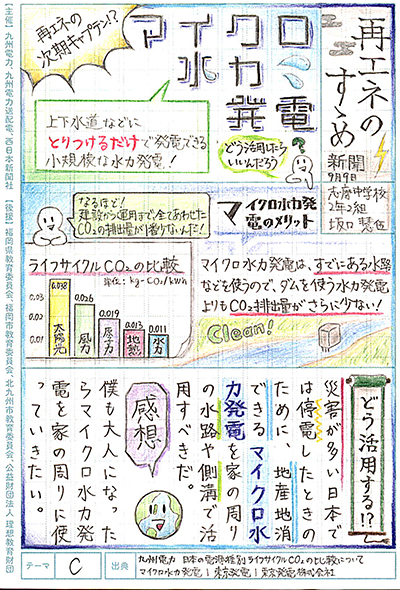 再エネの
すゝめ
新聞
9月9日
志摩中学校
2年2組
再エネの
次期キャプテン!?
マイクロ
水力
発電
上下水道などに
とりつけるだけで発電できる
小規模な水力発電！
どう活用したら
いいんだろう
マイクロ水力発
電のメリット
なるほど！
建設から運用まで、全てあわせた
CO₂の排出量が1番少ないんだ！
マイクロ水力発電は、すでにある水路
などを使うので、ダムを使う水力発電
よりもCO₂排出量がさらに少ない！
Clean!
ライフサイクルCO₂の比較
単位：kg-CO₂/kWh
0.03
0.02
0.01
0.038
太陽光
0.026
風力
0.019
原子力
0.013
地熱
0.011
水力
どう活用する!?
災害が多い日本で
は停電したときの
ために、地産地消
できるマイクロ水
力発電を家の周り
の水路や側溝で活
用すべきだ。
感想
僕も大人になった
らマイクロ水力発
電を家の周りに使
っていきたい。
テーマ
C
出典
九州電力 日本の電源種別ライフサイクルCO₂の比較について
マイクロ水力発電｜東京発電｜東京発電株式会社
【主催】九州電力、九州電力送配電、西日本新聞社 【後援】福岡県教育委員会、福岡市教育委員会、北九州市教育委員会、公益財団法人 理想教育財団